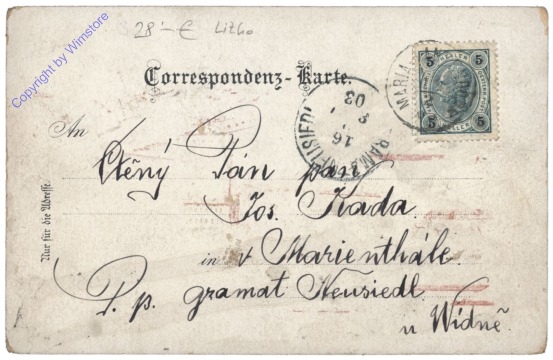 28'- € Lizho
Copyright by Wimstore
Correspondenz-Karte.
5 5
5 5
MARIA
RAMAT NEUSIEDL
16 3 03
An
Ctěný Pán pan
Jos. Kada.
in v Marienthále
P. p. gramat Neusiedl
u Wídně
Nur für die Adresse.